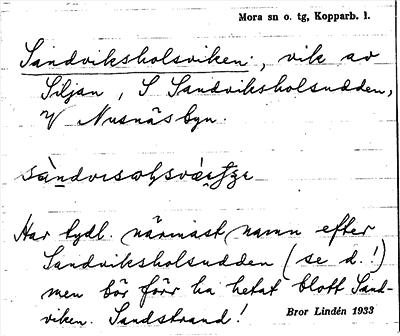 Mora sn o. tg, Kopparb. l.
Sandviksholsviken:, vik av
Siljan, S Sandviksholsudden,
V Nusnäsbyn.
Har tydl. närmast namn efter
Sandviksholsudden (se d.!)
men bör förr ha hetat blott Sand-
viken. Sandstrand!
Bror Lindén 1933